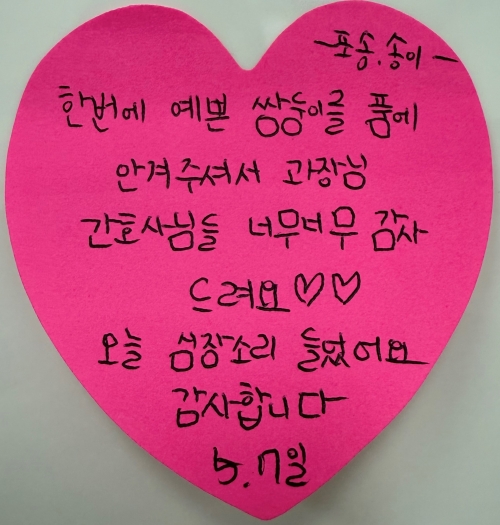 -포송.송이-
한번에 예쁜 쌍둥이를 품에
안겨주셔서 과장님
간호사님들 너무너무 감사
드려요♡♡
오늘 심장소리 들었어요
감사합니다
5.7일